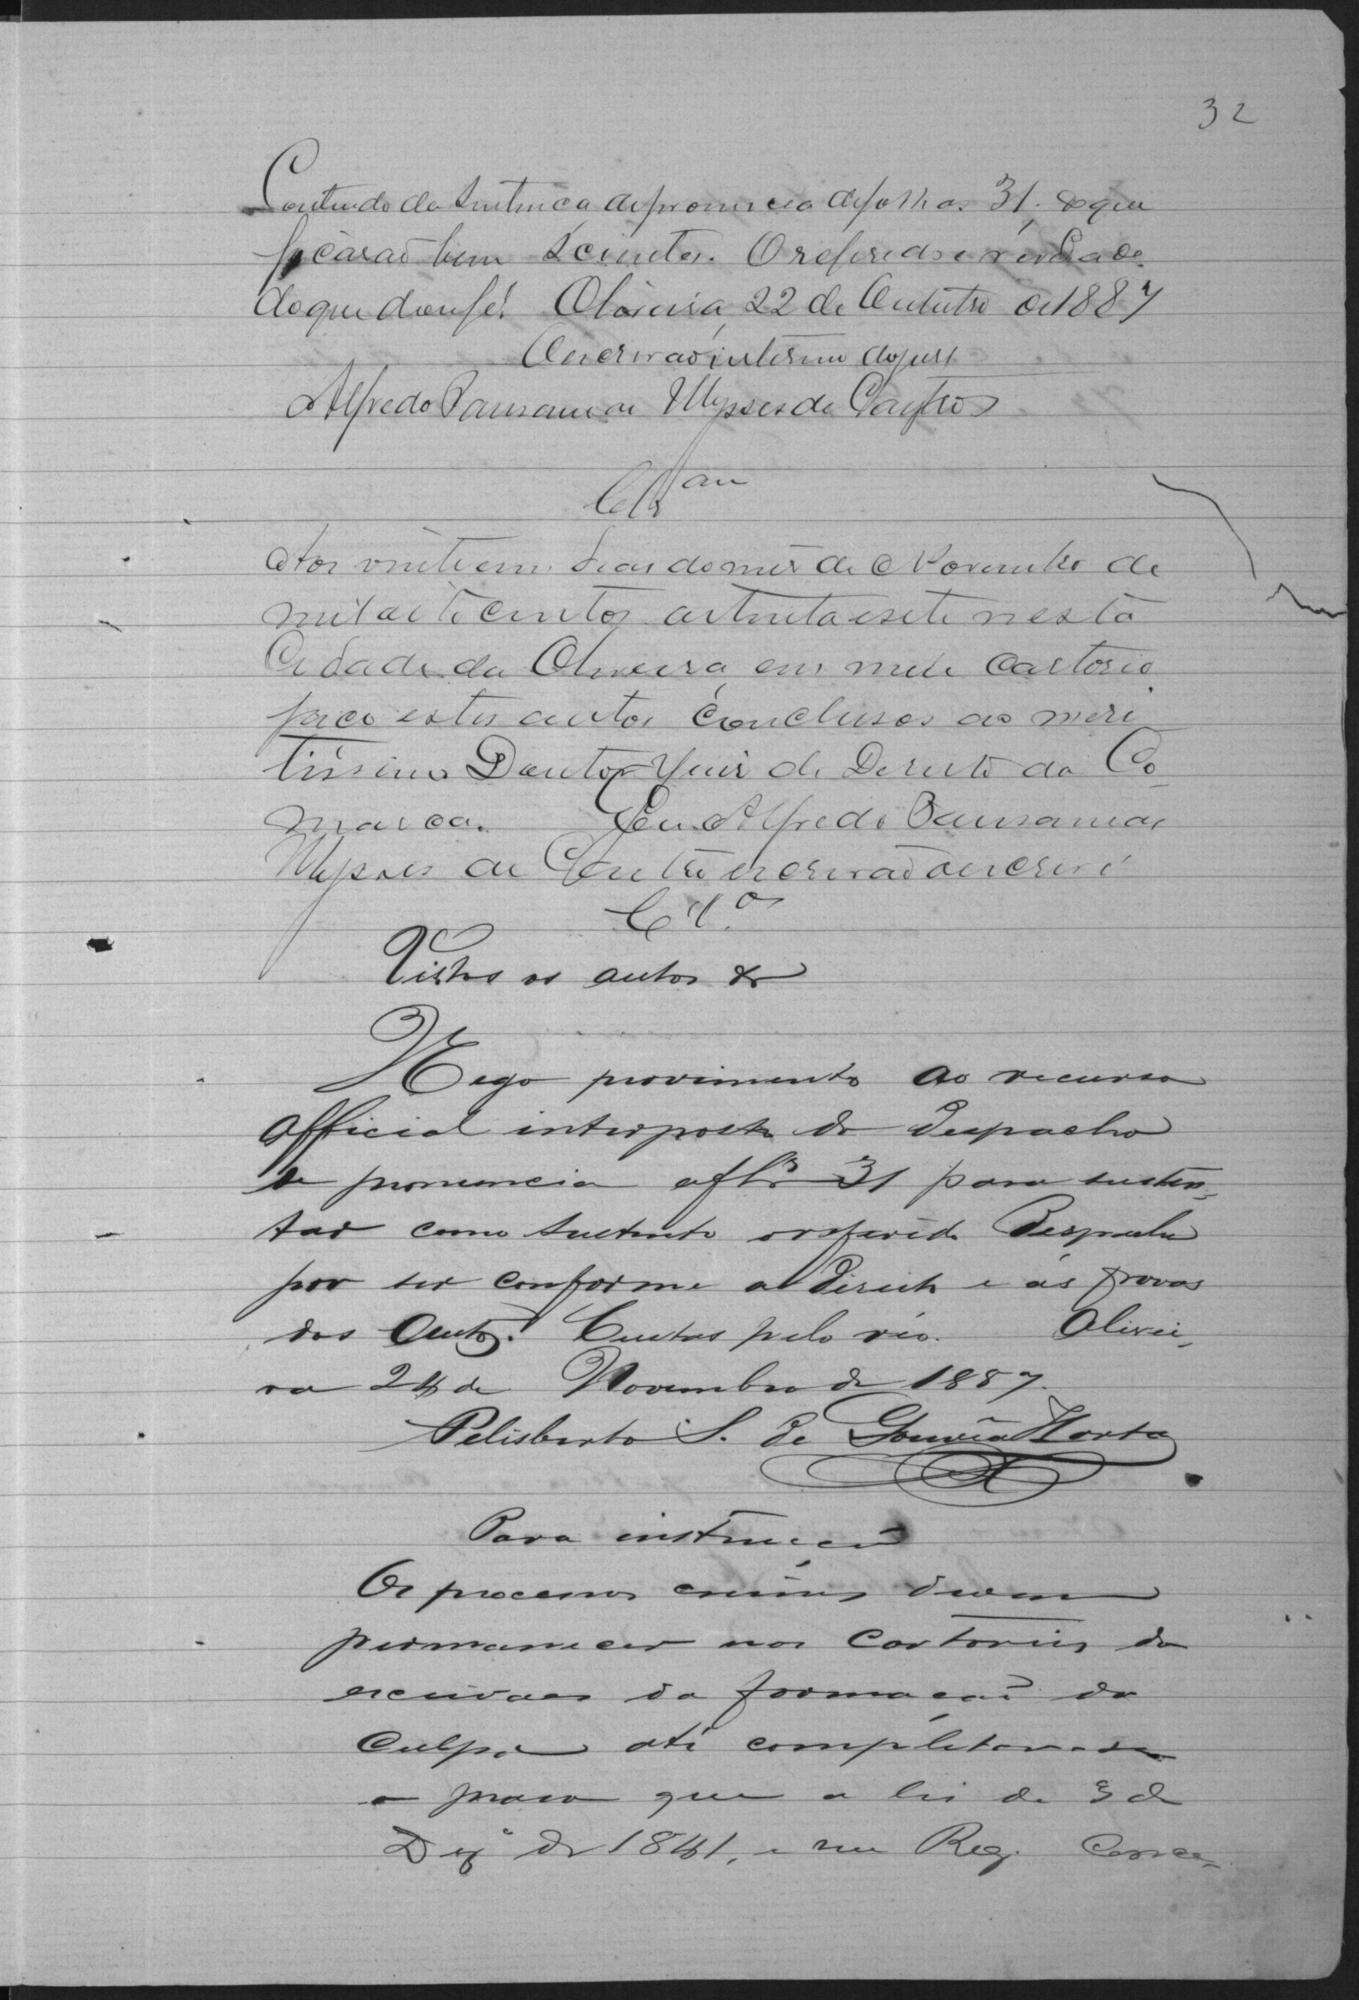 32
Contendo da Sentença de pronuncia de folhas 31. do que
ficarão bem Scientes. O referido é verdade
do que dou fé. Oliveira, 22 de Outubro de 1887
O escrivão interino do jury
Alfredo Pausanias Ulysses de Castro
Clsam
Aos vinte em dias do mes de Novembro de
mil oitocentos oitenta e sete nesta
Cidade da Oliveira, em meu cartorio
faço estes autos conclusos ao meri
tissimo Doutor Juiz de Dereito da Co
marca. Eu Alfredo Pausanias
Ulysses de Castro escrivão o escrevi
Clos
Vistos os autos &
Nego provimento ao recurso
official interposto do Despacho
de pronuncia a fls 31 para susten
tar como sustento o referido Despacho
por ser conforme a Direito e ás provas
dos Autos. Custas pelo réo. Olivei
ra 24 de Novembro de 1887.
Felisberto S. de Gouvêa Horta
Para instrucção
Os processos crimes devem
permanecer nos Cartorios do
escrivães da formação da
Culpa até completar-se
o praso que a lei de 3 de
Dezº de 1841, e seu Reg. Conce